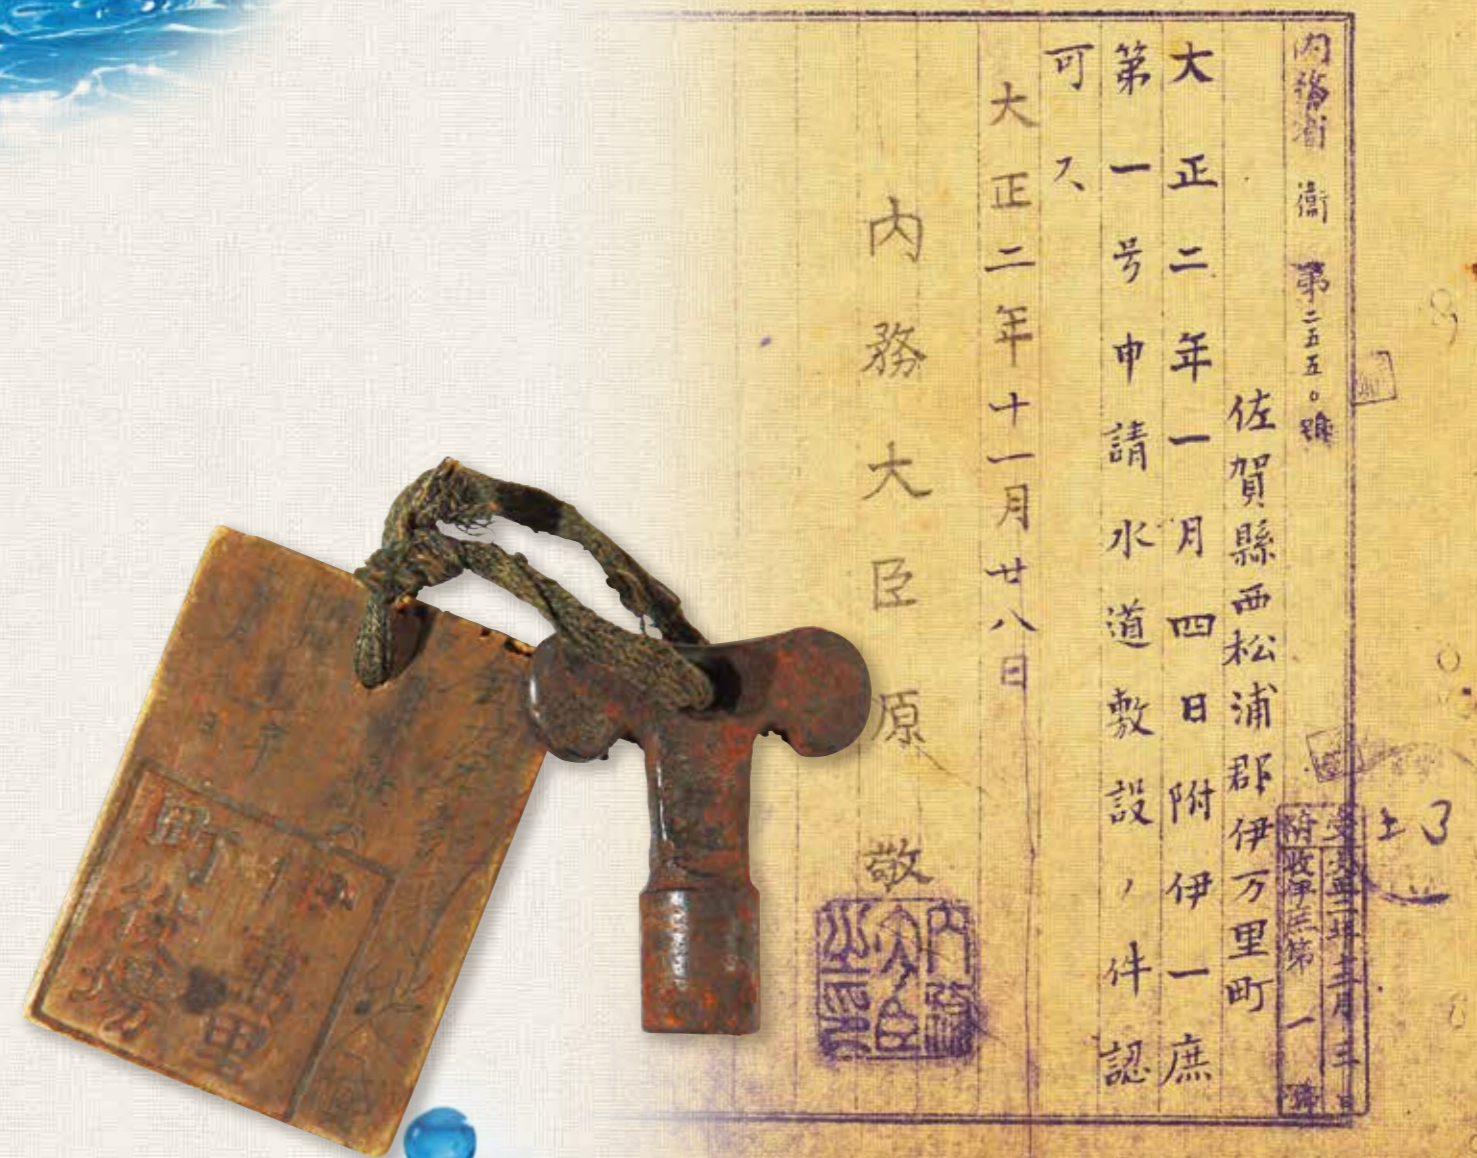 内務省 衞 第二五五〇號
佐賀縣西松浦郡伊万里町
大正二年一月四日附伊一庶
第一号申請水道敷設ノ件認
可ス
大正二年十一月廿八日
内務大臣原敬
内務大臣之印
受附
大正二年十二月三日
收伊庶第一號
伊萬里
町役場